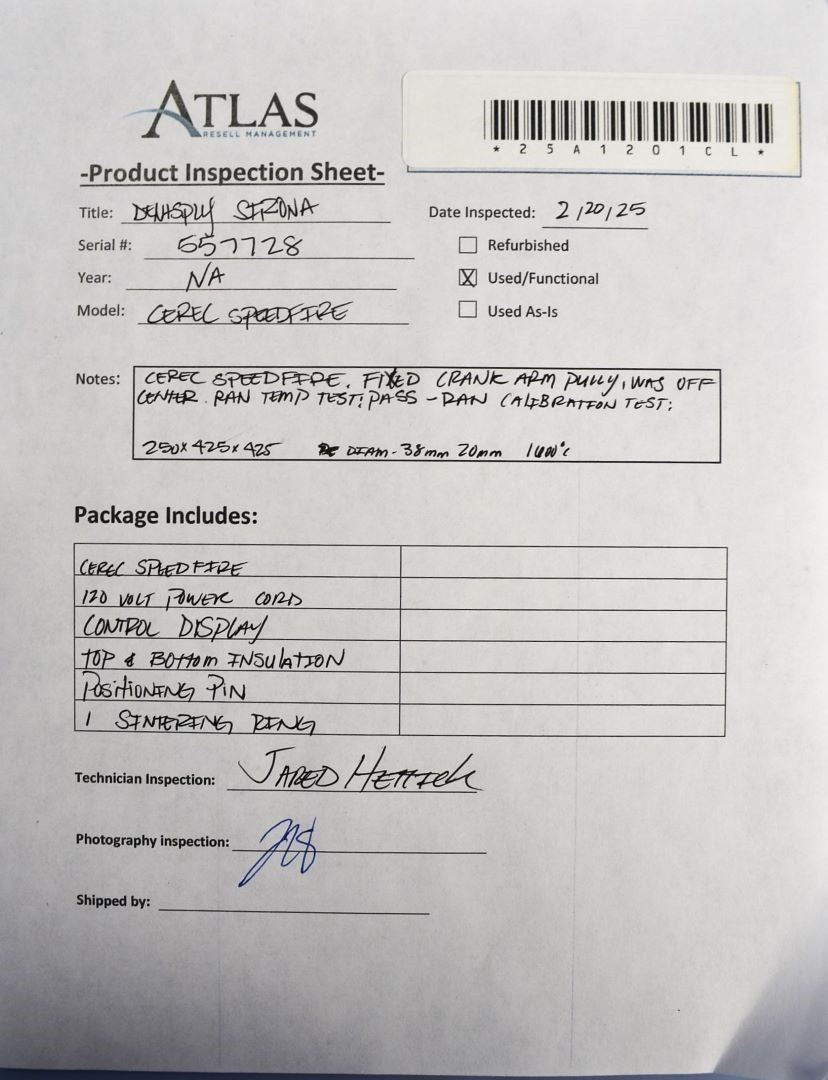 ATLAS
RESELL MANAGEMENT
* 2 5 A 1 2 0 1 C L *
-Product Inspection Sheet-
Title: DENTSPLY SIRONA
Date Inspected: 2/20/25
Serial #: 557728
Refurbished
Year: NA
X Used/Functional
Model: CEREC SPEEDFIRE
Used As-Is
Notes: CEREC SPEEDFIRE. FIXED CRANK ARM PULLY, WAS OFF
CENTER. RAN TEMP TEST: PASS - RAN CALIBRATION TEST:
250 x 425 x 425 DIAM - 38mm 20mm 1600°C
Package Includes:
CEREC SPEEDFIRE
120 VOLT POWER CORD
CONTROL DISPLAY
TOP & BOTTOM INSULATION
POSITIONING PIN
1 SINTERING RING
Technician Inspection: JARED
Photography inspection:
Shipped by: